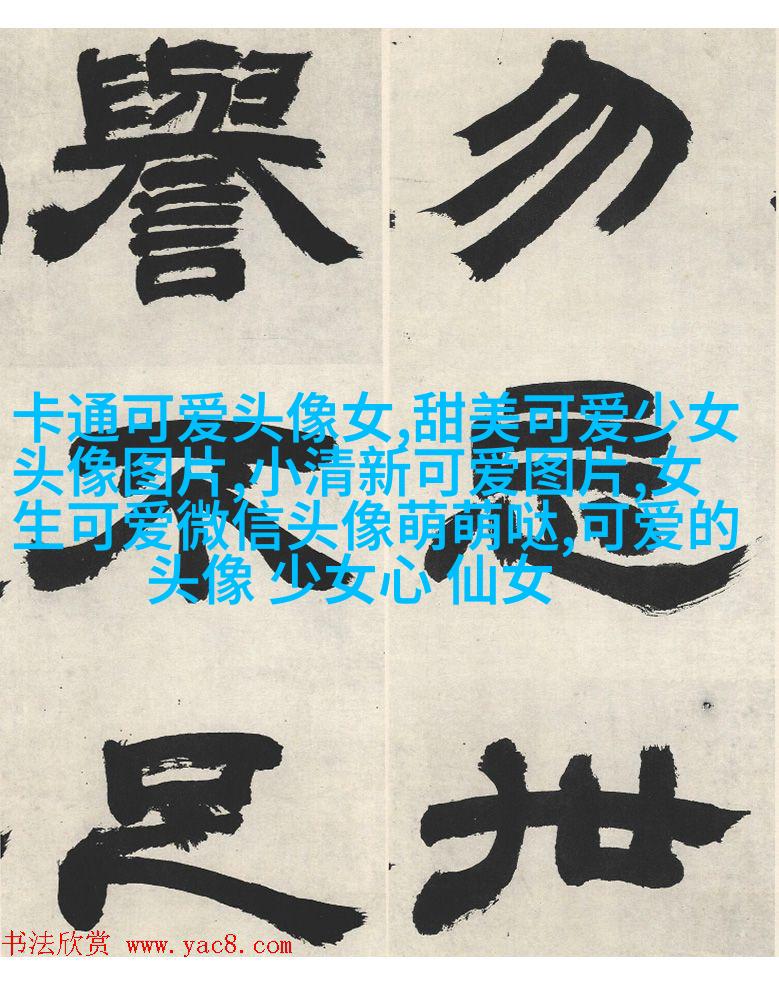 勿世
譽不足
卡通可爱头像女,甜美可爱少女
头像图片,小清新可爱图片,女
生可爱微信头像萌萌哒,可爱的
头像 少女心 仙女
书法欣赏 www.yac8.com